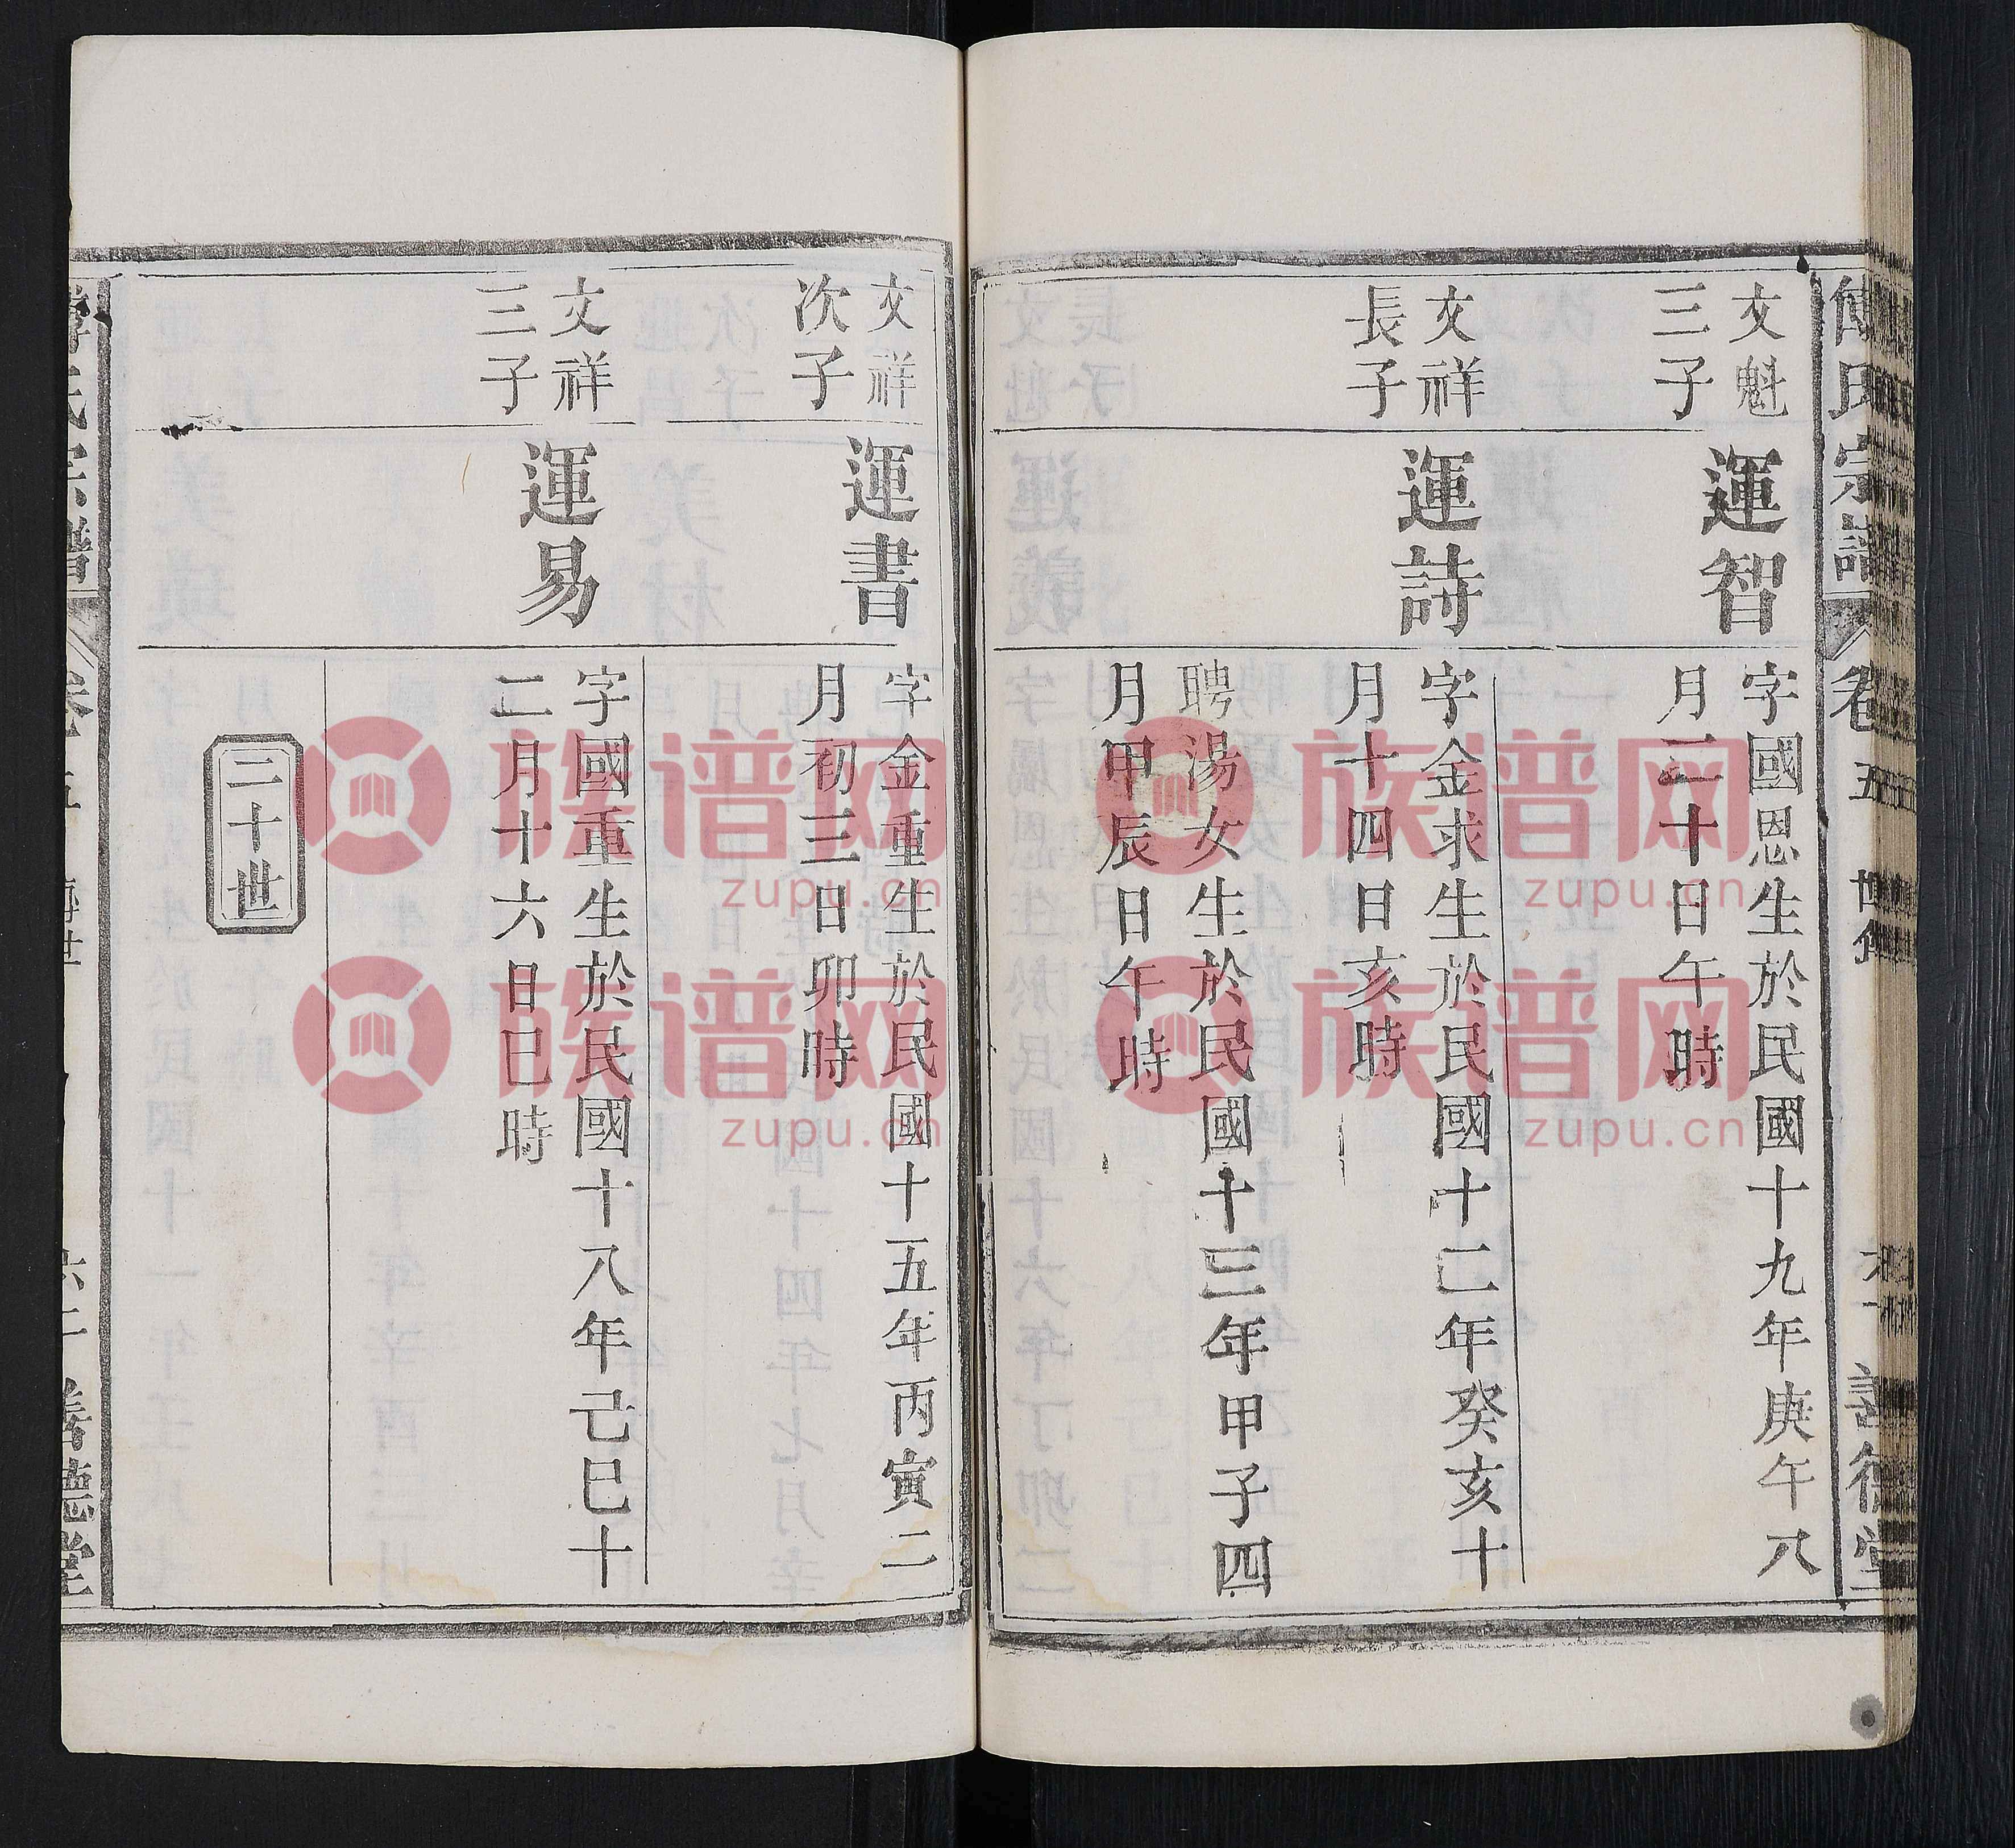 傅氏宗譜 卷五 世傳 善德堂
文魁
三子
運智
字國恩生於民國十九年庚午八
月二十日午時
文祥
長子
運詩
字金求生於民國十二年癸亥十
月十四日亥時
聘湯女生於民國十三年甲子四
月甲辰日午時
文祥
次子
運書
字金重生於民國十五年丙寅二
月初三日卯時
文祥
三子
運易
字國重生於民國十八年己巳十
二月十六日巳時
二十世
氏宗譜 卷五 善德堂
族谱网
zupu.cn
族谱网
zupu.cn
族谱网
zupu.cn
族谱网
zupu.cn